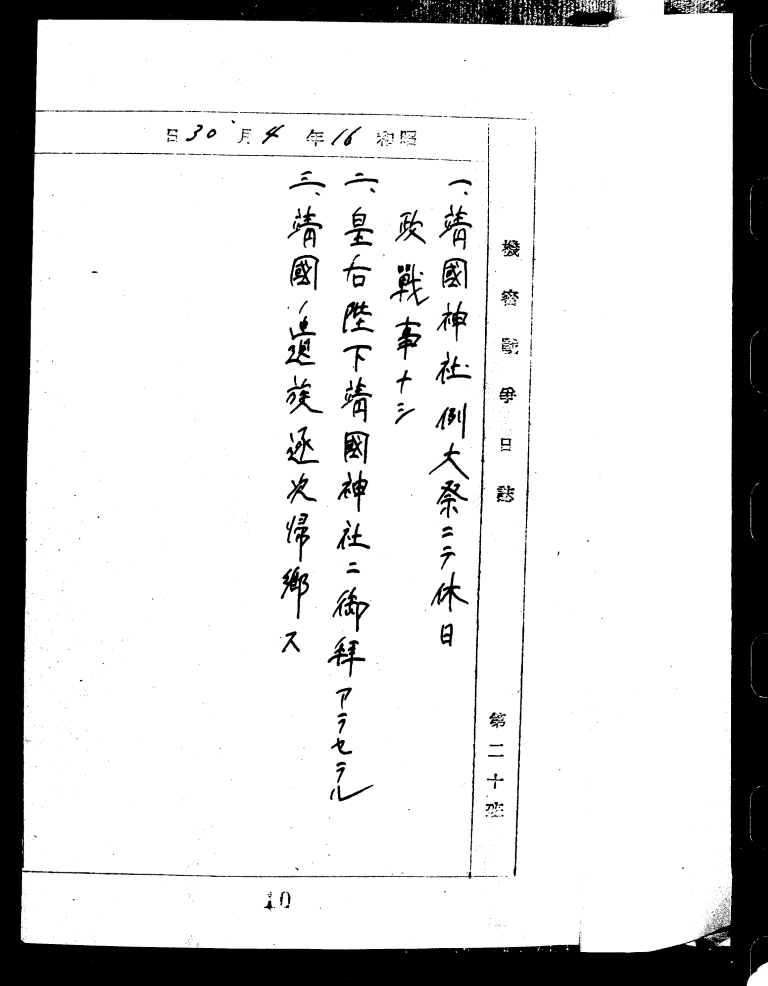 機密戰爭日誌 第二十班
昭和16年4月30日
一、靖國神社例大祭ニテ休日
政戰事ナシ
二、皇后陛下靖國神社ニ御拜アラセラル
三、靖國ノ遺族逐次歸鄕ス
10